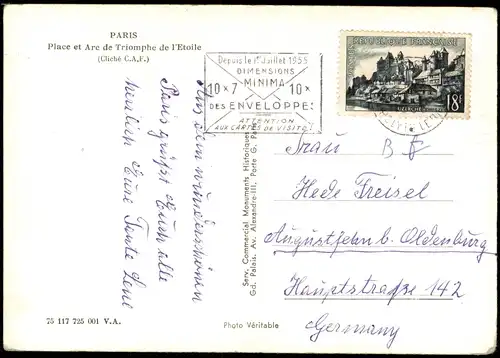 PARIS
Place et Arc de Triomphe de l'Etoile
(Cliché C.A.F.)
Aus dem wunderschönen
Paris grüßt Euch alle
herzlich Eure Tante Lene
75 117 725 001 V.A.
Depuis le 1er Juillet 1955
DIMENSIONS
MINIMA
10 x 7 10 x
DES ENVELOPPE
ATTENTION
AUX CARTES DE VISITE!
REPUBLIQUE FRANÇAISE
UZERCHE
18F
Serv. Commercial Monuments Historiques
Gd. Palais. Av. Alexandre-III, Porte G. Paris
Photo Véritable
Frau
Hede Freisel
Augustfehn b. Oldenburg
Hauptstraße 142
Germany